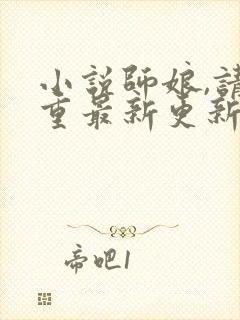 小說師娘,請
重最新更新
帝吧1